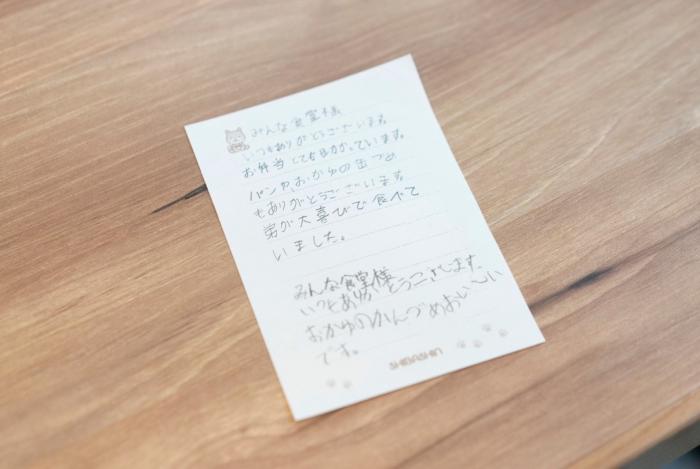 みんな食堂様
いつもありがとうございます
お弁当とても助かっています
パンやおかゆの缶づめ
もありがとうございます
弟が大喜びで食べて
いました。
みんな食堂様
いつもありがとうございます
おかゆのかんづめおいしい
です。